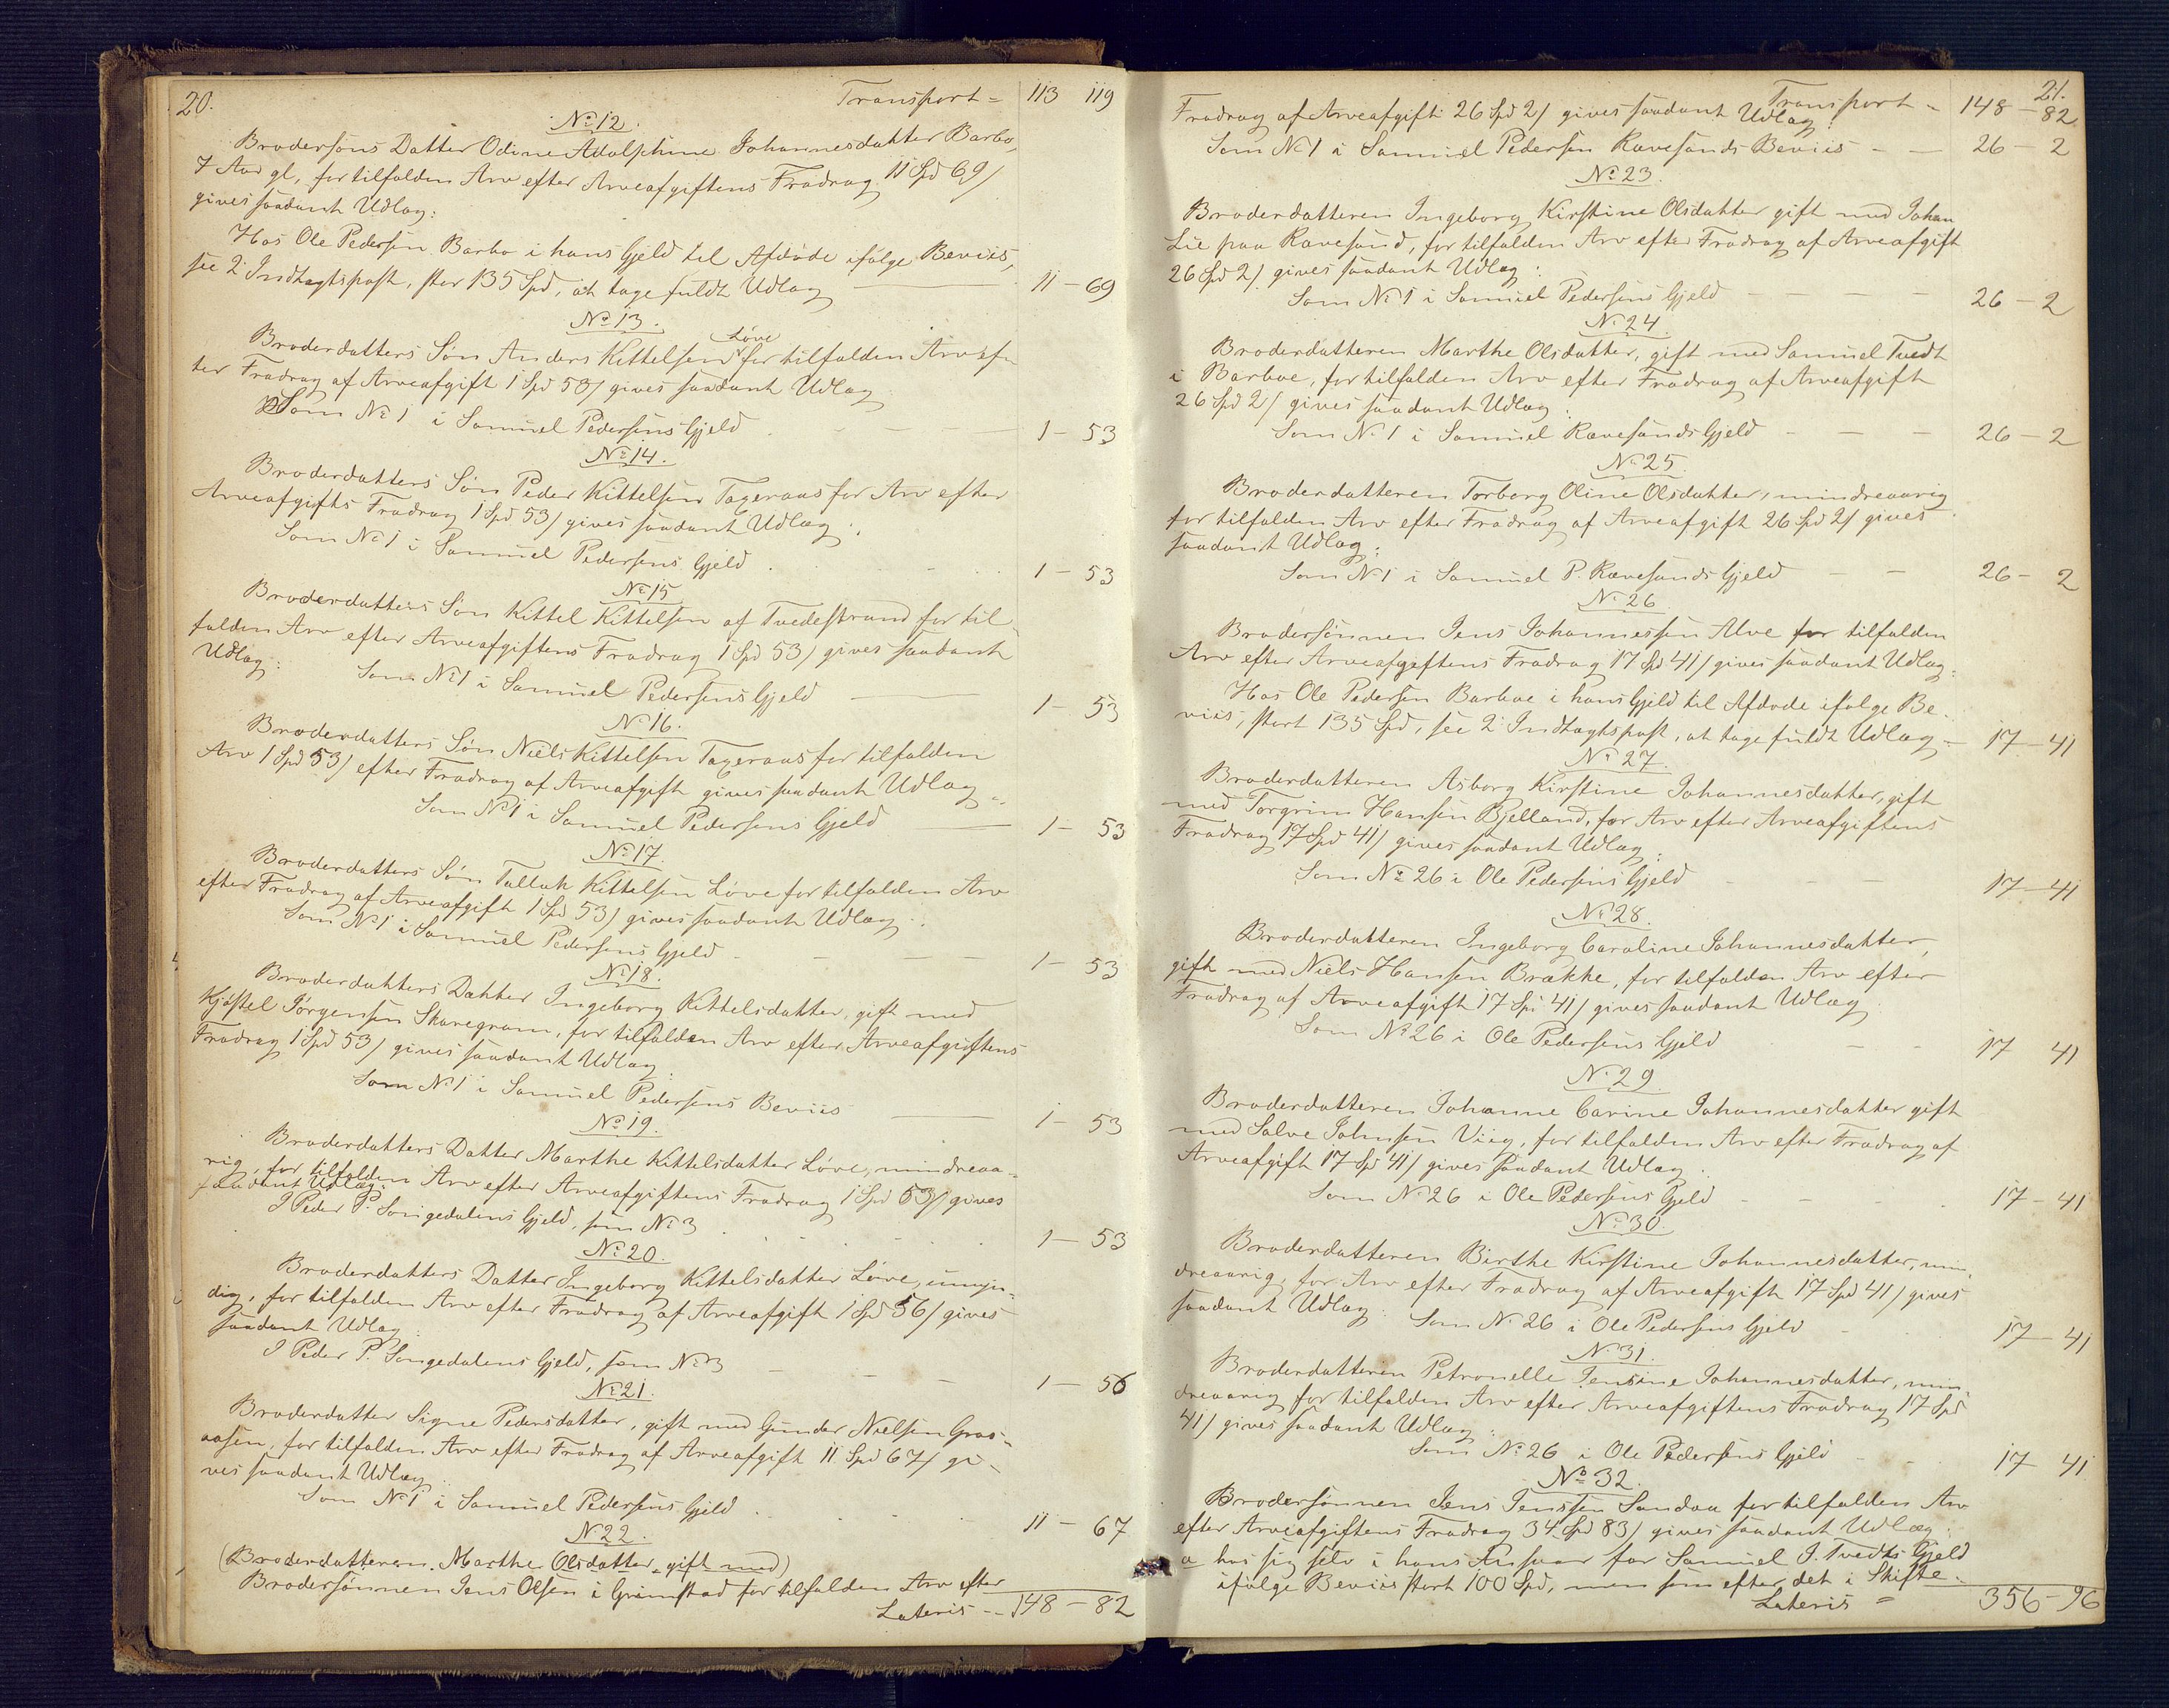 20.
Transport = 113 119
No 12.
Brodersøns Datter Odine Adolphine Johannesdatter Barbo,
7 Aar gl, for tilfalden Arv efter Arveafgiftens Fradrag 11 Spd 69/
gives saadant Udlæg:
Hos Ole Pedersen Barbo i hans Gjeld til Afdøde ifølge Beviis,
see 2 Indtægtspost, stor 135 Spd, at tage fuldt Udlæg — 11 – 69
No 13.
Broderdatters Søn Anders Kittelsen Løve for tilfalden Arv ef-
ter Fradrag af Arveafgift 1 Spd 53/ gives saadant Udlæg
Som No 1 i Samuel Pedersens Gjeld — 1 – 53
No 14.
Broderdatters Søn Peder Kittelsen Tageraas for Arv efter
Arveafgifts Fradrag 1 Spd 53/ gives saadant Udlæg:
Som No 1 i Samuel Pedersens Gjeld. 1 – 53
No 15
Broderdatters Søn Kittel Kittelsen af Tvedestrand for til-
falden Arv efter Arveafgiftens Fradrag 1 Spd 53/ gives saadant
Udlæg: Som No 1 i Samuel Pedersens Gjeld — 1 – 53
No 16.
Broderdatters Søn Niels Kittelsen Tageraas for tilfalden
Arv 1 Spd 53/ efter Fradrag af Arveafgift gives saadant Udlæg:
Som No 1 i Samuel Pedersens Gjeld — 1 – 53
No 17.
Broderdatters Søn Tallak Kittelsen Løve for tilfalden Arv
efter Fradrag af Arveafgift 1 Spd 53/ gives saadant Udlæg:
Som No 1 i Samuel Pedersens Gjeld — 1 – 53
No 18.
Broderdatters Datter Ingeborg Kittelsdatter, gift med
Kjøstel Jørgensen Skaregrøm, for tilfalden Arv efter Arveafgiftens
Fradrag 1 Spd 53/ gives saadant Udlæg:
Som No 1 i Samuel Pedersens Beviis — 1 – 53
No 19.
Broderdatters Datter Marthe Kittelsdatter Løve, mindreaa-
rig, for tilfalden Arv efter Arveafgiftens Fradrag 1 Spd 53/ gives
saadant Udlæg:
I Peder P. Songedalens Gjeld, som No 3 1 – 53
No 20.
Broderdatters Datter Ingeborg Kittelsdatter Løve, umyn-
dig, for tilfalden Arv efter Fradrag af Arveafgift 1 Spd 56/ gives
saadant Udlæg:
I Peder P. Songedalens Gjeld, som No 3 — 1 – 56
No 21.
Broderdatter Signe Pedersdatter, gift med Gunder Nielsen Graa-
aasen, for tilfalden Arv efter Fradrag af Arveafgift 11 Spd 67/ gi-
ves saadant Udlæg:
Som No 1 i Samuel Pedersens Gjeld. 11 – 67
No 22.
(Broderdatteren Marthe Olsdatter, gift med)
Brodersønnen Jens Olsen i Grimstad for tilfalden Arv efter
Lateris – 148 – 82
21.
Transport – 148 – 82
Fradrag af Arveafgift 26 Spd 2/ gives saadant Udlæg:
Som No 1 i Samuel Pedersen Ravesands Beviis — 26 – 2
No 23.
Broderdatteren Ingeborg Kirstine Olsdatter gift med Johan
Lie paa Ravesand, for tilfalden Arv efter Fradrag af Arveafgift
26 Spd 2/ gives saadant Udlæg:
Som No 1 i Samuel Pedersens Gjeld — 26 – 2
No 24.
Broderdatteren Marthe Olsdatter, gift med Samuel Tvedt
i Barboe, for tilfalden Arv efter Fradrag af Arveafgift
26 Spd 2/ gives saadant Udlæg:
Som No 1 i Samuel Ravesands Gjeld — 26 – 2
No 25.
Broderdatteren Torborg Oline Olsdatter, mindreaarig
for tilfalden Arv efter Fradrag af Arveafgift 26 Spd 2/ gives
saadant Udlæg:
Som No 1 i Samuel P. Ravesands Gjeld — 26 – 2
No 26
Brodersønnen Jens Johannessen Alve for tilfalden
Arv efter Arveafgiftens Fradrag 17 Spd 41/ gives saadant Udlæg:
Hos Ole Pedersen Barboe i hans Gjeld til Afdøde ifølge Be-
viis, stort 135 Spd, see 2 Indtægtspost, at tage fuldt Udlæg – 17 – 41
No 27.
Broderdatteren Asborg Kirstine Johannesdatter, gift
med Torgrim Hansen Bjelland, for Arv efter Arveafgiftens
Fradrag 17 Spd 41/ gives saadant Udlæg:
Som No 26 i Ole Pedersens Gjeld — 17 – 41
No 28.
Broderdatteren Ingeborg Caroline Johannesdatter,
gift med Niels Hansen Brække, for tilfalden Arv efter
Fradrag af Arveafgift 17 Spd 41/ gives saadant Udlæg
Som No 26 i Ole Pedersens Gjeld — 17 41
No 29.
Broderdatteren Johanne Carine Johannesdatter gift
med Salve Johnsen Viig, for tilfalden Arv efter Fradrag af
Arveafgift 17 Spd 41/ gives saadant Udlæg:
Som No 26 i Ole Pedersens Gjeld — 17 – 41
No 30.
Broderdatteren Birthe Kirstine Johannesdatter, min-
dreaarig, for Arv efter Fradrag af Arveafgift 17 Spd 41/ gives
saadant Udlæg: Som No 26 i Ole Pedersens Gjeld – 17 – 41
No 31.
Broderdatteren Petronelle Jensine Johannesdatter, min-
dreaarig for tilfalden Arv efter Arveafgiftens Fradrag 17 Spd
41/ gives saadant Udlæg:
Som No 26 i Ole Pedersens Gjeld – 17 41
No 32.
Brodersønnen Jens Jenssen Sandaa for tilfalden Arv
efter Arveafgiftens Fradrag 34 Spd 83/ gives saadant Udlæg:
a hos sig selv i hans Ansvar for Samuel J. Tvedts Gjeld
ifølge Beviis stort 100 Spd, men som efter det i Skifte-
Lateris = 356 – 96